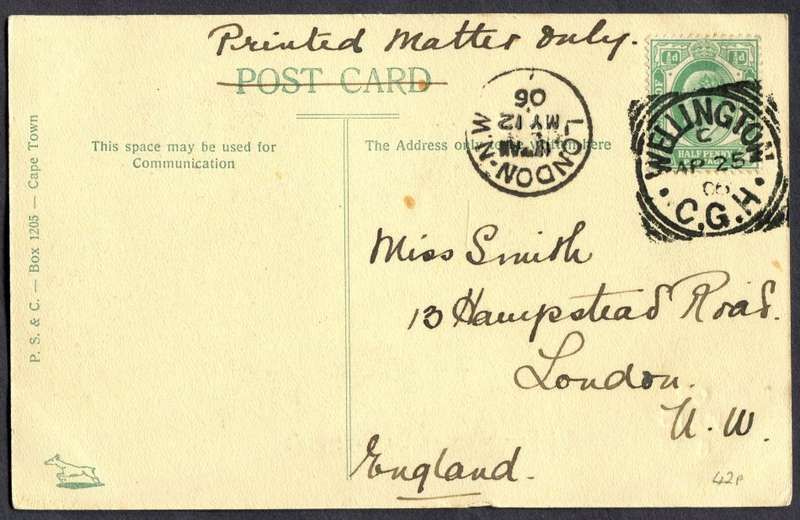 Printed Matter only.
POST CARD
This space may be used for
Communication
The Address only to be written here
LONDON·N.W
MY 12
06
½d ½d
HALFPENNY
WELLINGTON
C
AP 25
06
C.G.H.
Miss Smith
13 Hampstead Road.
London.
N. W.
England.
P. S. & C. — Box 1205 — Cape Town
42P